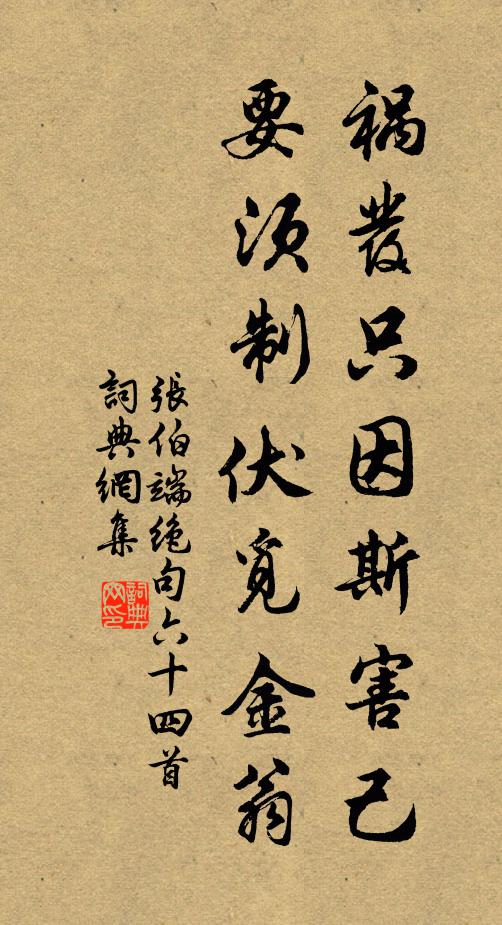 祸發只因斯害己
要須制伏覓金翁
張伯端絶句六十四首
詞典網集
詞典網印